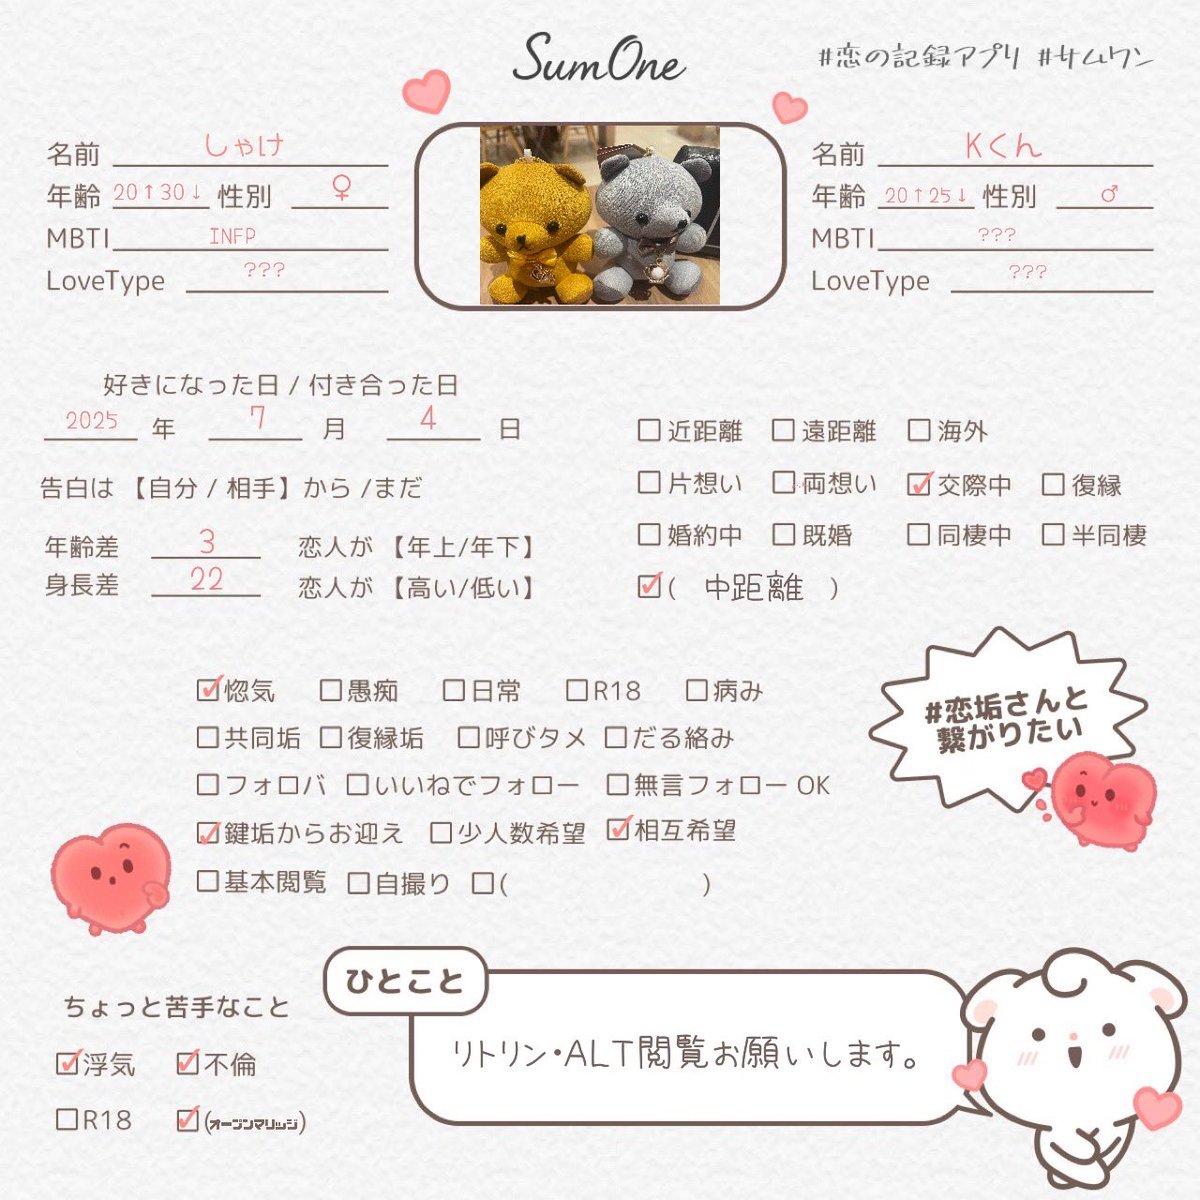 SumOne
#恋の記録アプリ #サムワン
名前 しゃけ
年齢 20↑30↓ 性別 ♀
MBTI INFP
LoveType ???
名前 Kくん
年齢 20↑25↓ 性別 ♂
MBTI ???
LoveType ???
好きになった日 / 付き合った日
2025 年 7 月 4 日
告白は 【自分 / 相手】から /まだ
年齢差 3 恋人が 【年上/年下】
身長差 22 恋人が 【高い/低い】
□近距離 □遠距離 □海外
□片想い □両想い ☑交際中 □復縁
□婚約中 □既婚 □同棲中 □半同棲
☑( 中距離 )
☑惚気 □愚痴 □日常 □R18 □病み
□共同垢 □復縁垢 □呼びタメ □だる絡み
□フォロバ □いいねでフォロー □無言フォロー OK
☑鍵垢からお迎え □少人数希望 ☑相互希望
□基本閲覧 □自撮り □( )
#恋垢さんと
繋がりたい
ちょっと苦手なこと
☑浮気 ☑不倫
□R18 ☑(オープンマリッジ)
ひとこと
リトリン・ALT閲覧お願いします。